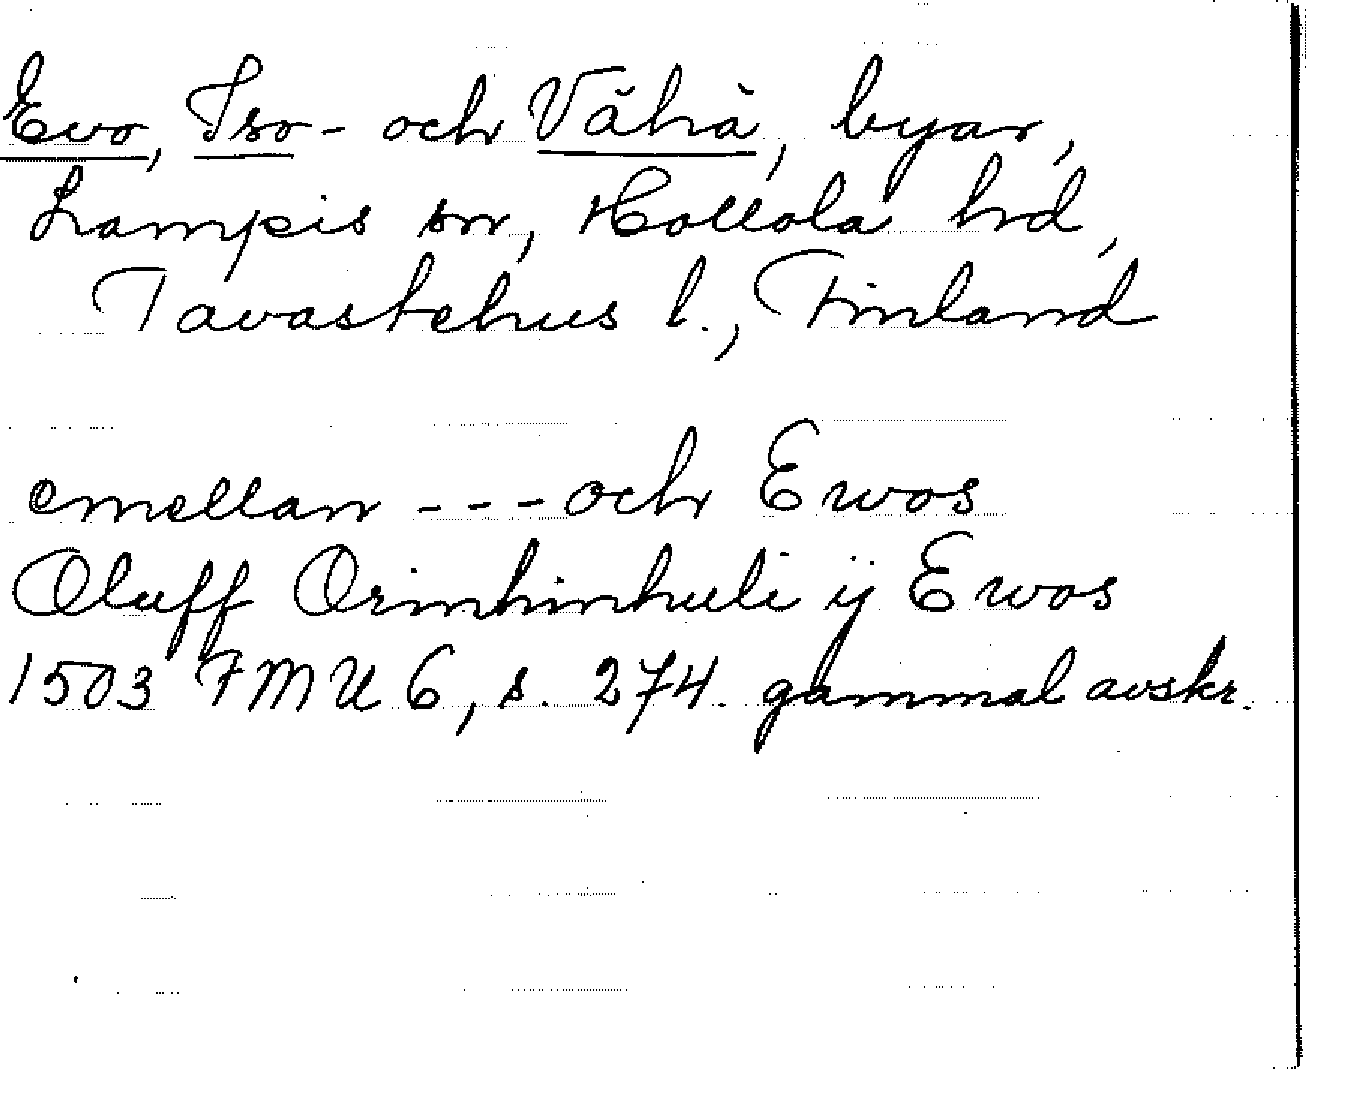 Evo, Iso- och Vähä, byar,
Lampis sn, Hollola hd,
Tavastehus l., Finland
emellan --- och Ewos
Oluff Orinhinhuli ij Ewos
1503 FMU 6, s. 274. gammal avskr.